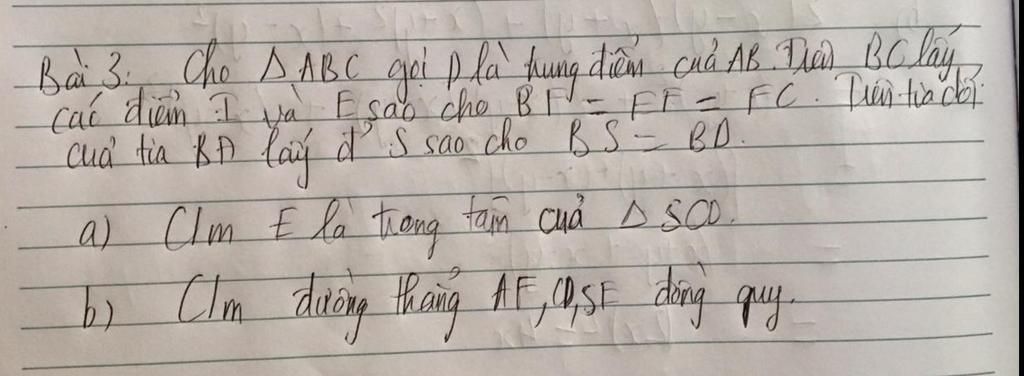 Bài 3: Cho △ABC gọi D là trung điểm của AB. Trên BC lấy
các điểm F và E sao cho BF = EF = FC. Trên tia đối
của tia BA lấy đ' S sao cho BS = BD.
a) C/m E là trọng tâm của △SCD.
b) C/m đường thẳng AF, CD, SE đồng quy.